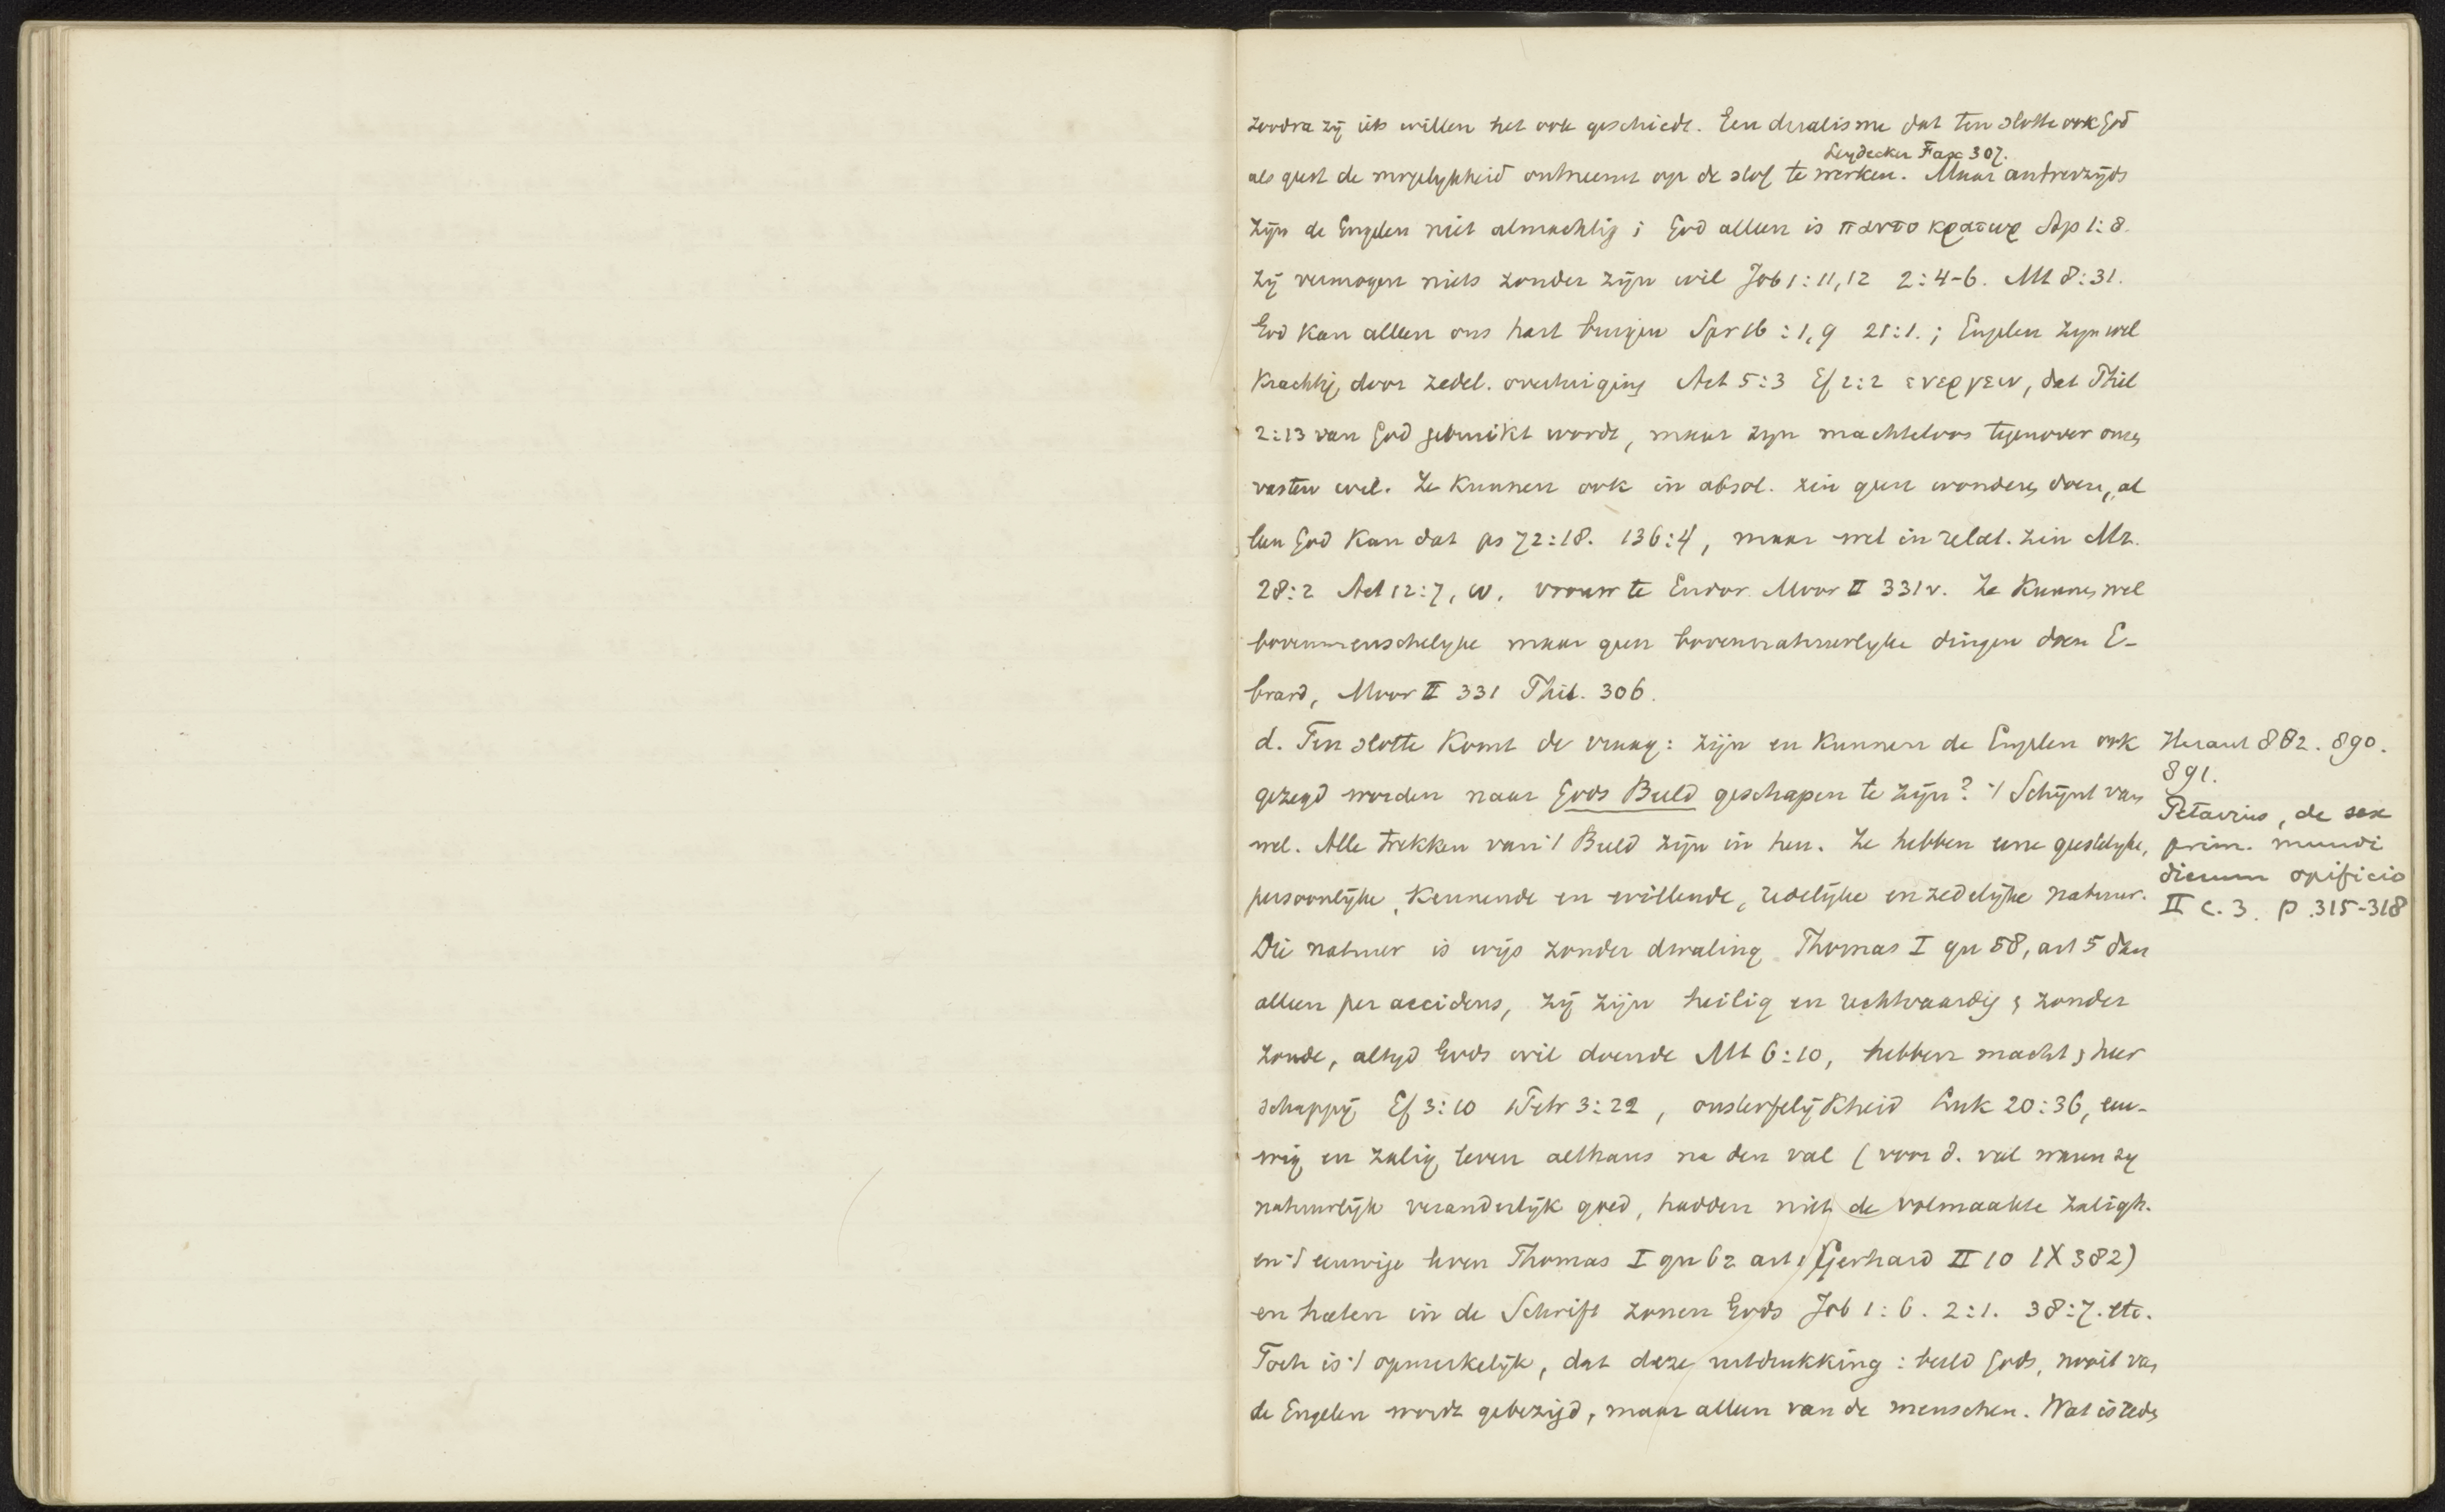 zoodra zij iets willen het ook geschiedt. Een dualisme dat ten slotte ook God
als geest de mogelykheid ontneemt op de stof te werken. Maar anderzijds
Leydecker Fax 307.
zijn de Engelen niet almachtig; God alleen is παντοκρατωρ Ap 1:8.
zij vermogen niets zonder zijn wil Job 1:11,12 2:4-6. Mt 8:31.
God kan alleen ons hart buigen Spr 16:1,9 21:1.; Engelen zyn wel
krachtig door zedel. overtuiging Act 5:3 Ef 2:2 ενεργειν, dat Phil
2:13 van God gebruikt wordt, maar zyn machteloos tegenover onzen
vasten wil. Ze kunnen ook in absol. zin geen wonderen doen, al
leen God kan dat ps 72:18. 136:4, maar wel in relat. zin Mt.
28:2 Act 12:7, vrouw te Endor Moor II 331v. Ze kunnen wel
bovenmenschelyke maar geen bovennatuurlyke dingen doen E-
brard, Moor II 331 Phil. 306.
d. Ten slotte komt de vraag: zijn en kunnen de Engelen ook
gezegd worden naar Gods Beeld geschapen te zijn? 't Schijnt van
wel. Alle trekken van 't Beeld zijn in hen. Ze hebben eene geestelyke,
persoonlijke, kennende en willende, redelijke en zedelijke natuur.
Die natuur is wijs zonder dwaling Thomas I qu 58, art 5 dan
alleen per accidens, zij zijn heilig en rechtvaardig, zonder
zonde, altyd Gods wil doende Mt 6:10, hebben macht, heer
schappij Ef 3:10 1 Petr 3:22, onsterfelijkheid Luk 20:36, eeu-
wig en zalig leven althans na den val (voor d. val waren zy
natuurlijk veranderlijk goed, hadden niet de volmaakte zaligh.
en 't eeuwige leven Thomas I qu 62 art 1 Gerhard II 10 IX 382)
en heeten in de Schrift zonen Gods Job 1:6. 2:1. 38:7. etc.
Toch is 't opmerkelijk, dat deze uitdrukking: beeld Gods, nooit van
de Engelen wordt gebezigd, maar alleen van de menschen. Wat is reden
Heraut 882. 890.
891.
Petavius, de sex
prim. mundi
dierum opificio
II c. 3. p. 315-318